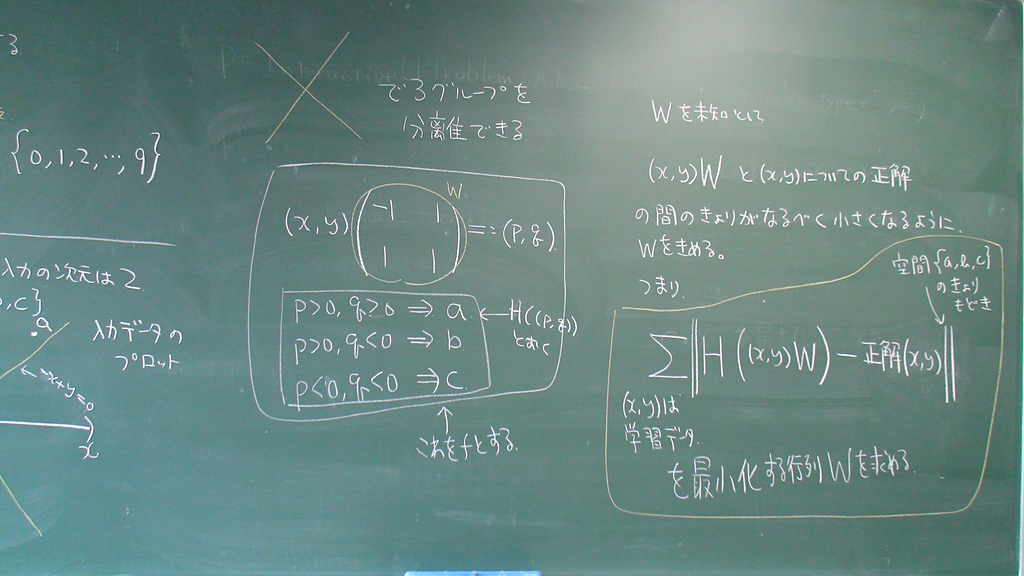 する
{0,1,2,…,9}
入力の次元は2
,C}
a
入力データの
プロット
x+y=0
x
で3グループを
分離できる
W
(x,y) (-1 1
1 1) =: (p,q).
p>0, q≥0 ⇒ a
p>0, q<0 ⇒ b
p<0, q<0 ⇒ c.
H((p,q))
とおく
これをfとする.
Wを未知として
(x,y)W と(x,y)についての正解
の間のきょりがなるべく小さくなるように.
Wをきめる。
つまり.
空間{a,b,c}
のきょり
もどき
Σ‖H((x,y)W)-正解(x,y)‖
(x,y)は
学習データ.
を最小化する行列Wを求める.